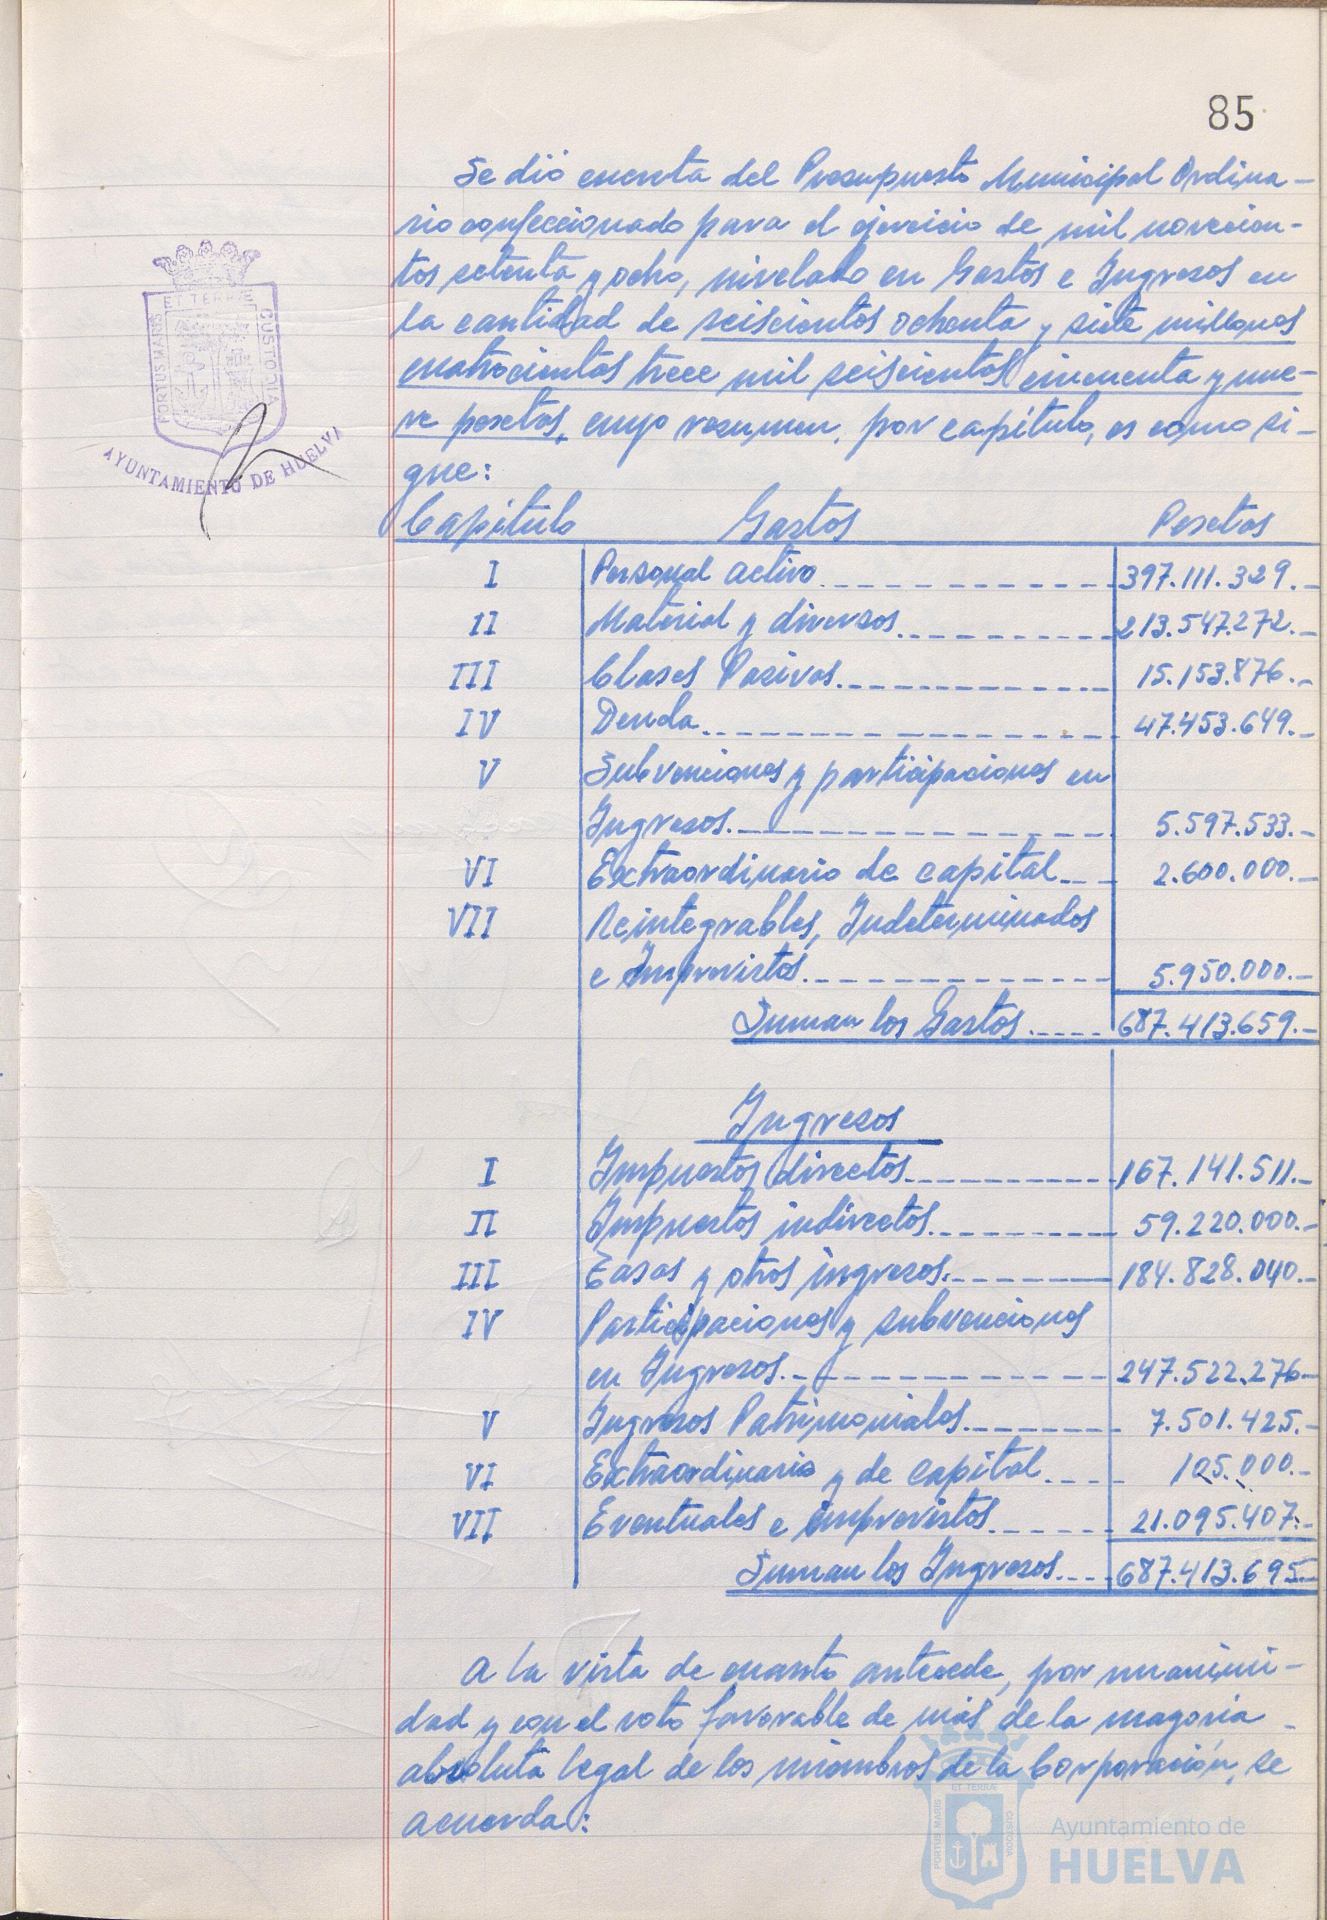 85
Se dió cuenta del Presupuesto Municipal Ordina-
rio confeccionado para el ejercicio de mil novecien-
tos setenta y ocho, nivelado en Gastos e Ingresos en
la cantidad de seiscientos ochenta y siete millones
cuatrocientos trece mil seiscientos cincuenta y nue-
ve pesetas, cuyo resumen, por capítulo, es como si-
gue:
ET TERRAE
PORTUS MARIS
CUSTODIA
AYUNTAMIENTO DE HUELVA
Capítulo Gastos Pesetas
I Personal activo 397.111.329.-
II Material y diversos 213.547.272.-
III Clases Pasivas 15.153.876.-
IV Deuda 47.453.649.-
V Subvenciones y participaciones en
Ingresos 5.597.533.-
VI Extraordinario de capital 2.600.000.-
VII Reintegrables, Indeterminados
e Imprevistos 5.950.000.-
Suman los Gastos 687.413.659.-
Ingresos
I Impuestos directos 167.141.511.-
II Impuestos indirectos 59.220.000.-
III Tasas y otros ingresos 184.828.040.-
IV Participaciones y subvenciones
en Ingresos 247.522.276-
V Ingresos Patrimoniales 7.501.425.-
VI Extraordinario y de capital 105.000.-
VII Eventuales e imprevistos 21.095.407.-
Suman los Ingresos 687.413.695.-
A la vista de cuanto antecede, por unanimi-
dad y con el voto favorable de más de la mayoria
absoluta legal de los miembros de la Corporación, se
acuerda:
ET TERRAE
PORTUS MARIS
CUSTODIA
Ayuntamiento de
HUELVA